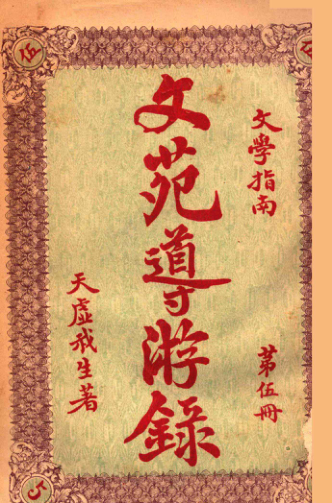 伍
伍
文學指南
第伍冊
文苑導游錄
天虛我生著
5